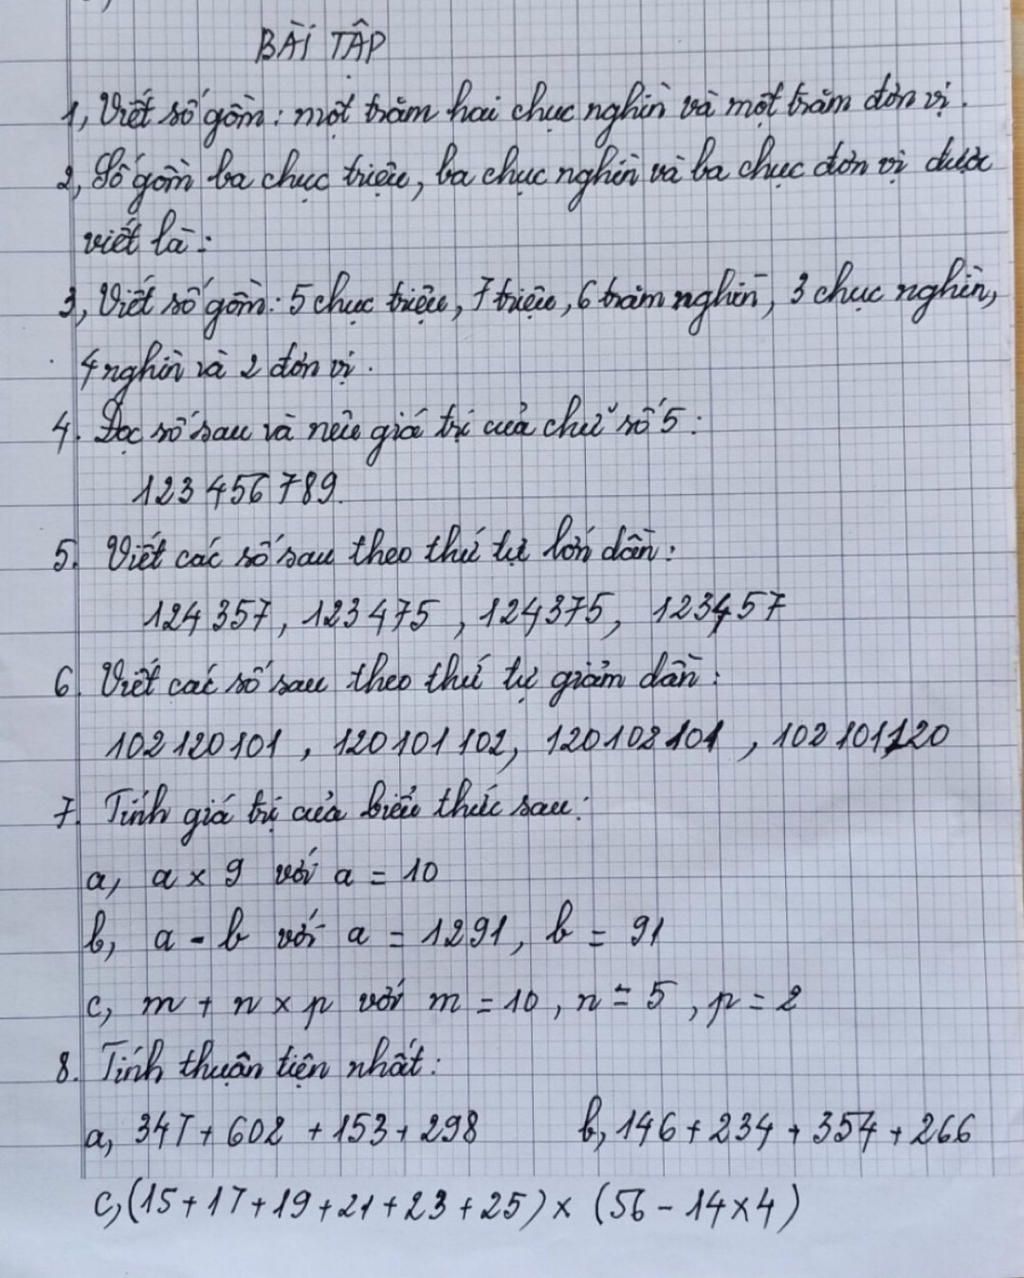 BÀI TẬP
1, Viết số gồm: một trăm hai chục nghìn và một trăm đơn vị.
2, Số gồm ba chục triệu, ba chục nghìn và ba chục đơn vị được
viết là:
3, Viết số gồm: 5 chục triệu, 7 triệu, 6 trăm nghìn, 3 chục nghìn,
4 nghìn và 2 đơn vị.
4. Đọc số sau và nêu giá trị của chữ số 5:
123 456 789.
5. Viết các số sau theo thứ tự lớn dần:
124 357, 123 475, 124 375, 123 457
6. Viết các số sau theo thứ tự giảm dần:
102 120 101, 120 101 102, 120 102 101, 102 101 120
7. Tính giá trị của biểu thức sau:
a, a × 9 với a = 10
b, a - b với a = 1291, b = 91
c, m + n × p với m = 10, n = 5, p = 2
8. Tính thuận tiện nhất:
a, 347 + 602 + 153 + 298 b, 146 + 234 + 354 + 266
c, (15 + 17 + 19 + 21 + 23 + 25) × (56 - 14 × 4)